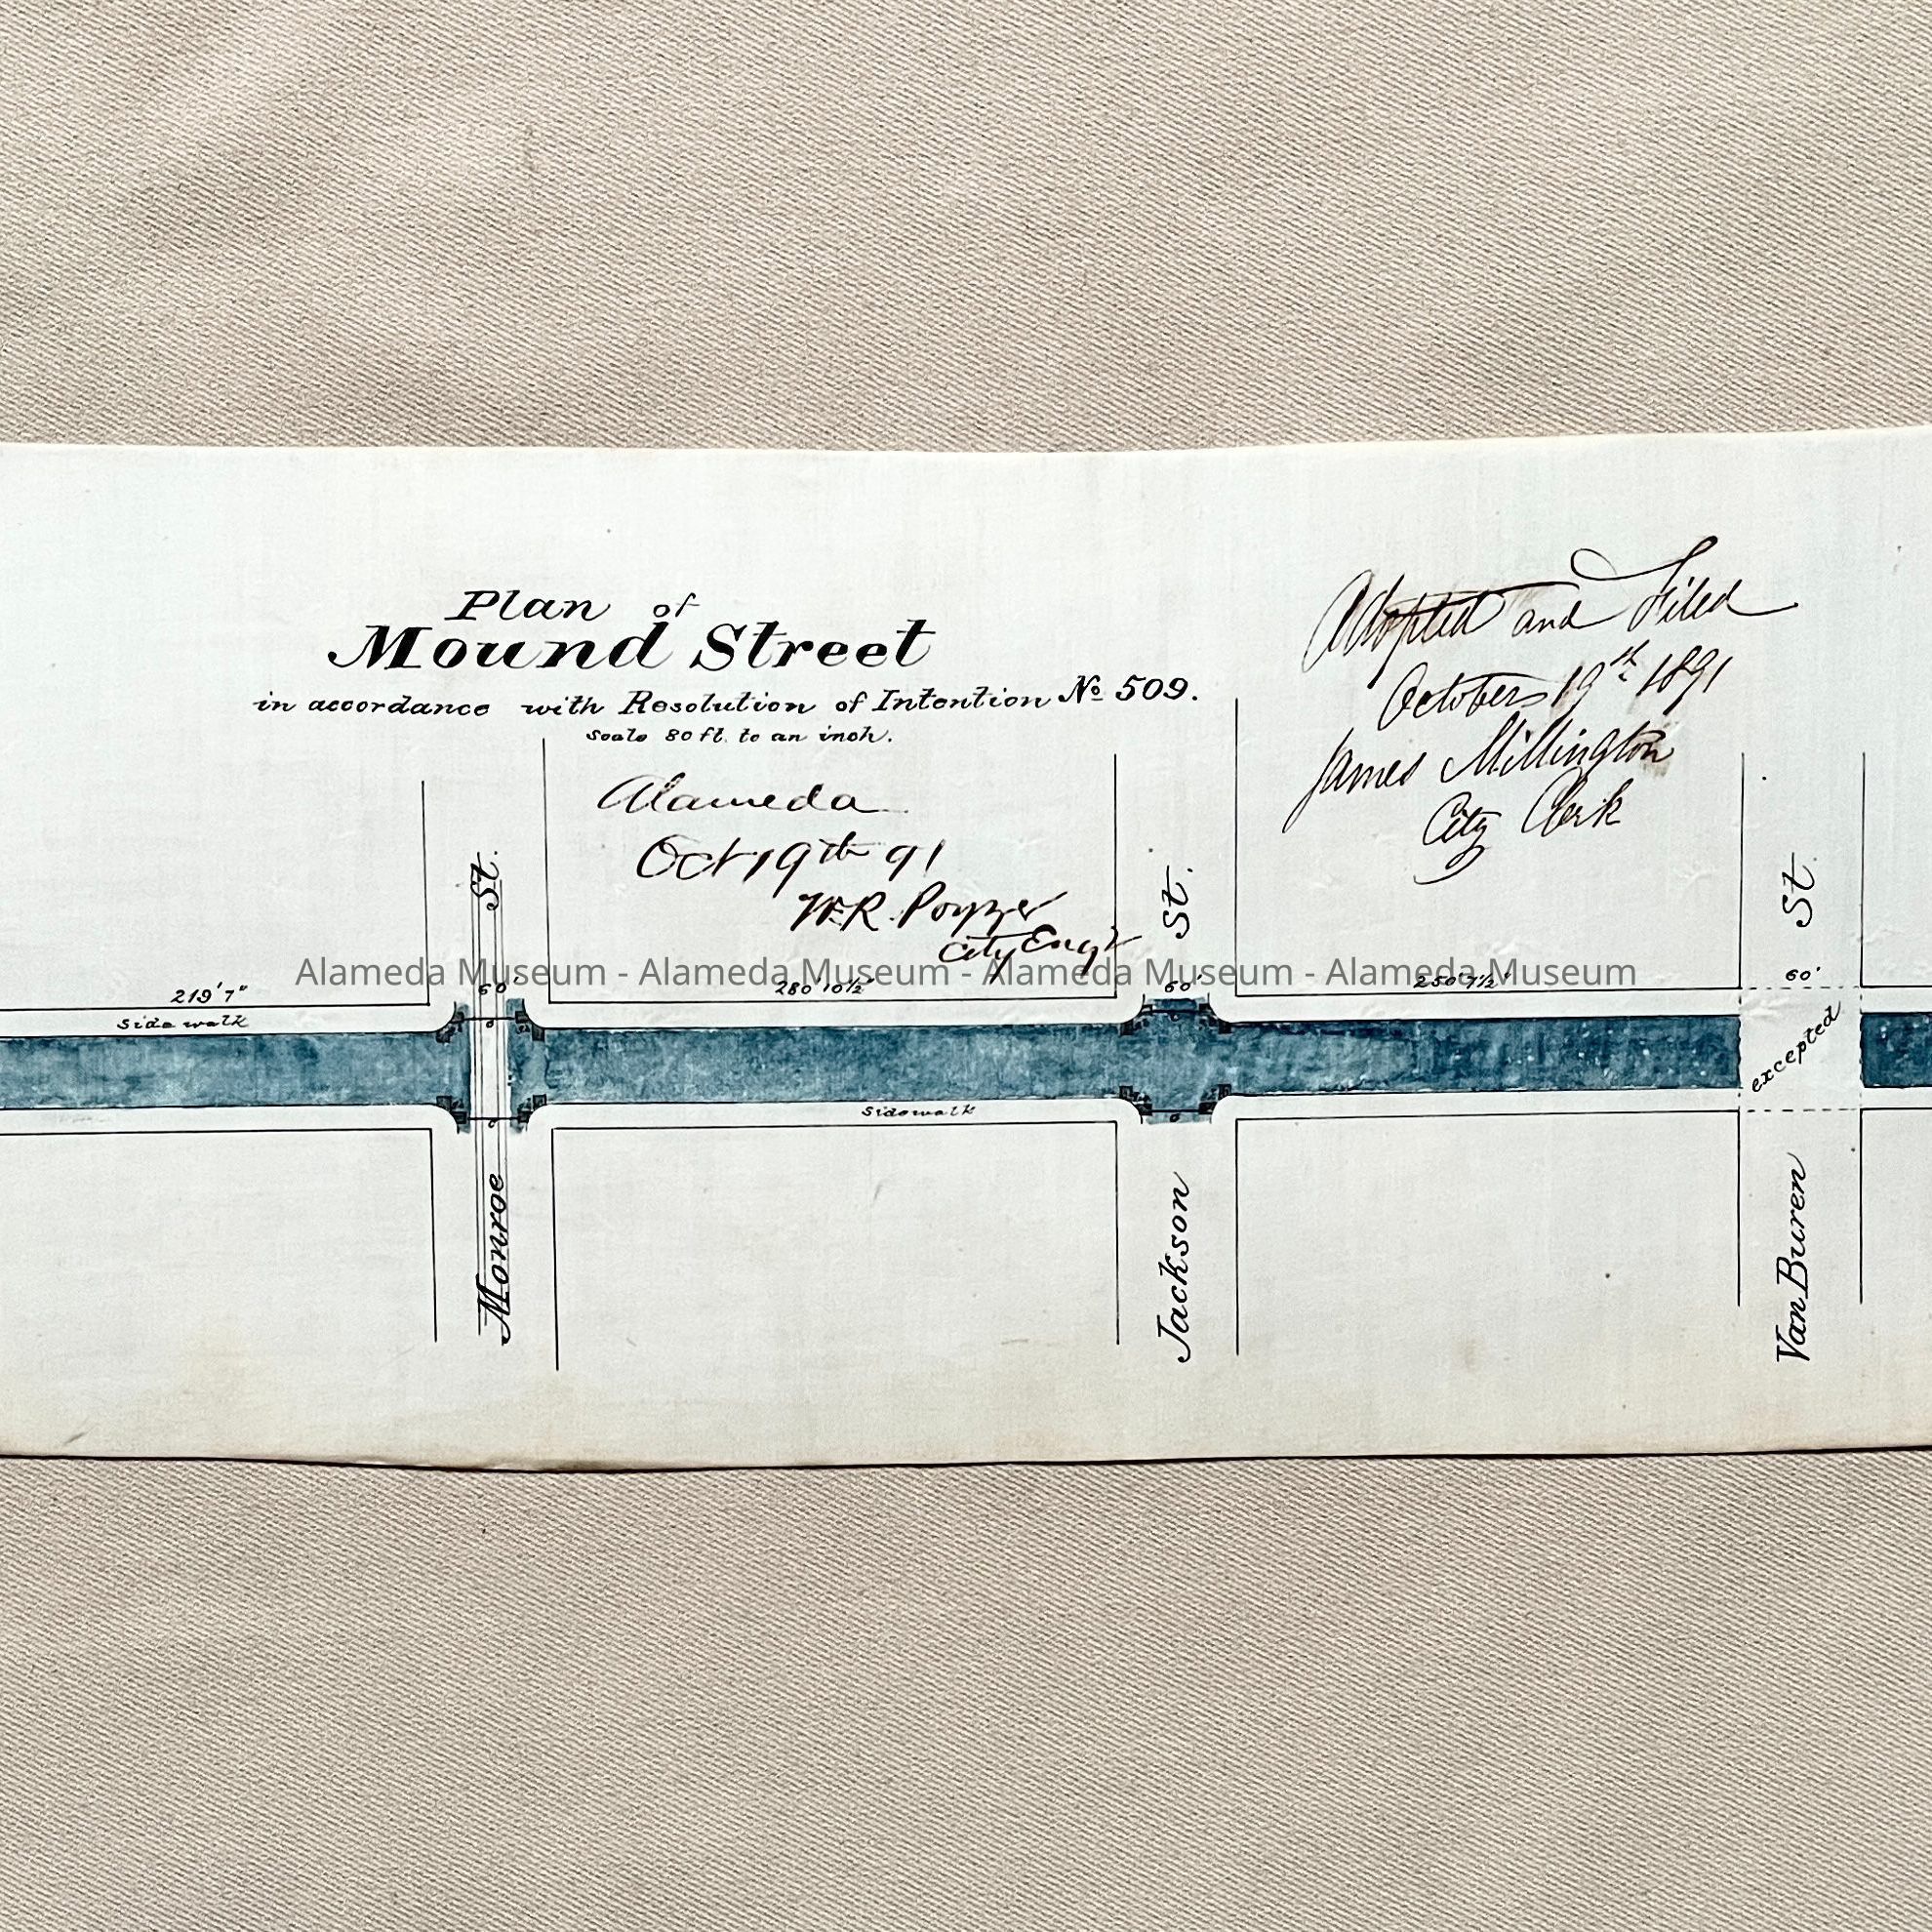 Plan of
Mound Street
in accordance with Resolution of Intention No 509.
Scale 80 ft. to an inch.
Alameda
Oct 19th 91
W.R. Poyzer
City Engr
Adopted and Filed
October 19th 1891
James Millington
City Clerk
St.
St.
St.
Alameda Museum - Alameda Museum - Alameda Museum - Alameda Museum
219' 7"
60'
280' 10½"
60'
250' 7½"
60'
Sidewalk
excepted
Sidewalk
Monroe
Jackson
Van Buren